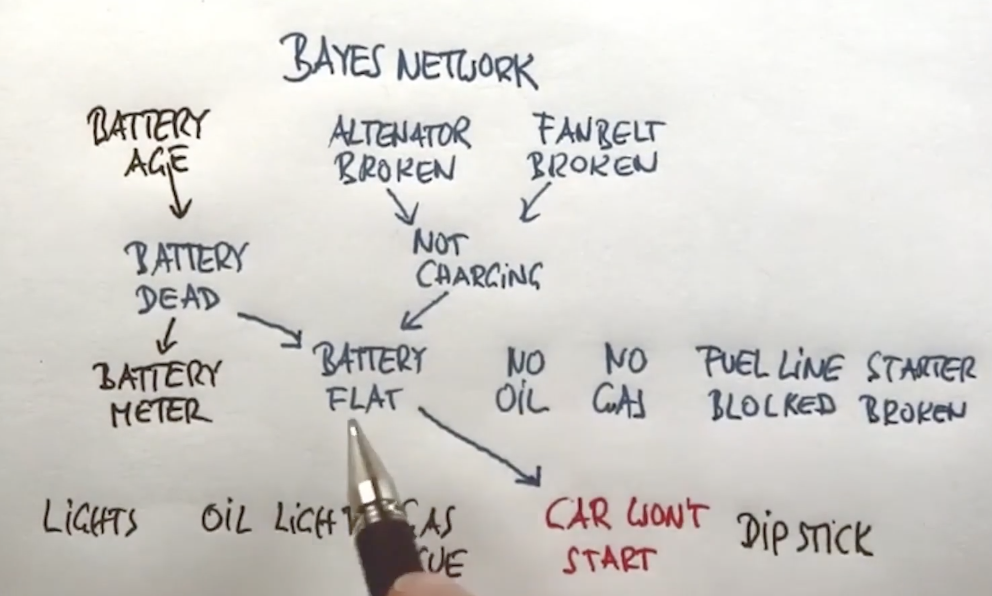 BAYES NETWORK
BATTERY
AGE
ALTENATOR
BROKEN
FANBELT
BROKEN
BATTERY
DEAD
NOT
CHARGING
BATTERY
METER
BATTERY
FLAT
NO
OIL
NO
GAS
FUEL LINE
BLOCKED
STARTER
BROKEN
LIGHTS
OIL LIGHT
GAS
CAR WON'T
START
DIP STICK